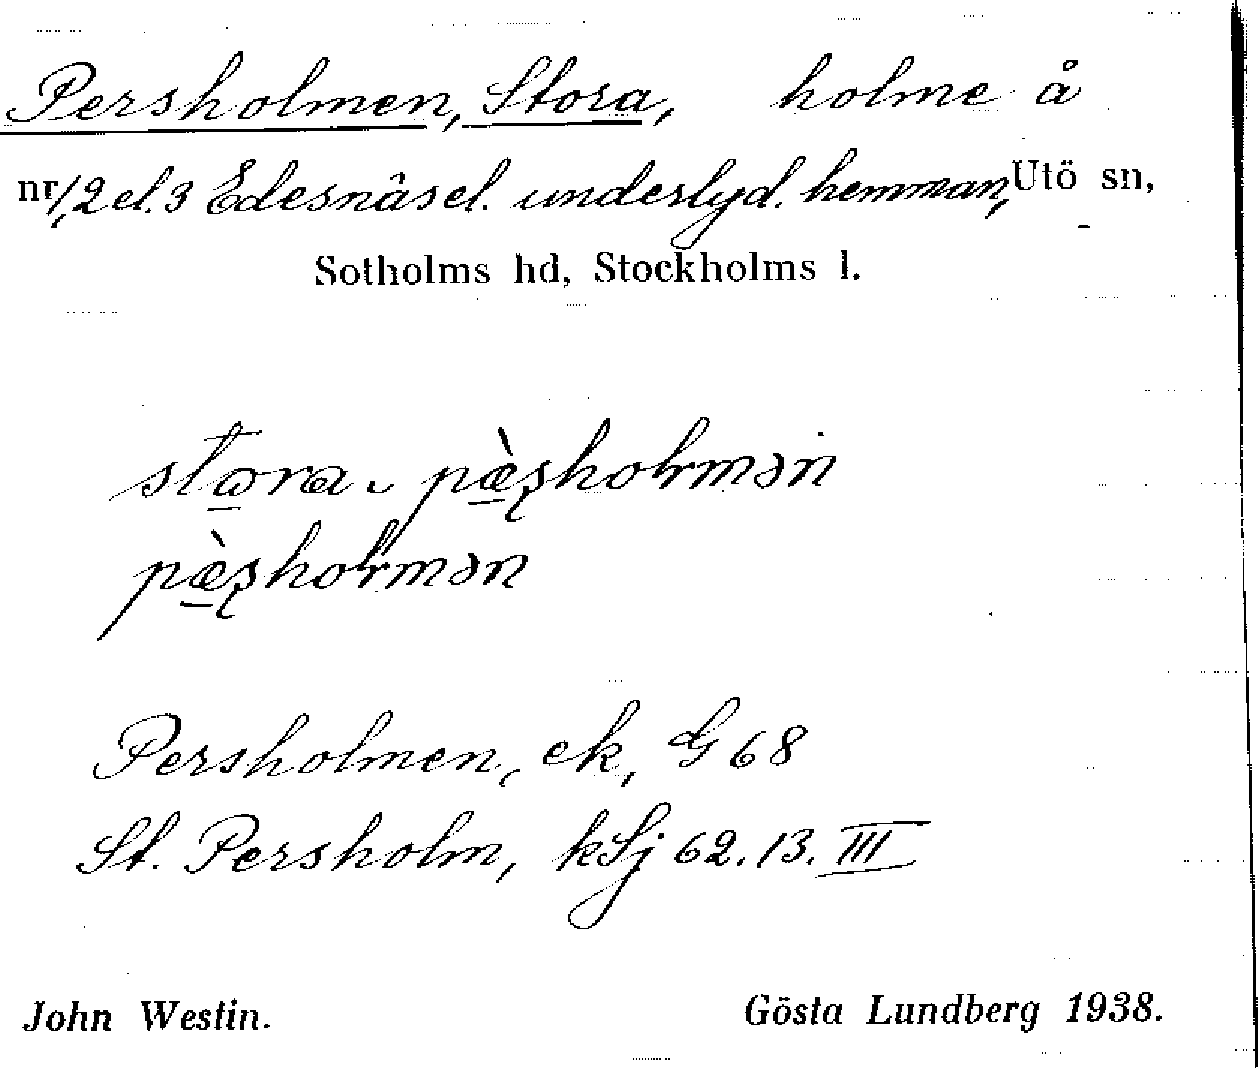 Persholmen, Stora, holme å
nr 1, 2 el. 3 Edesnäs el. underlyd. hemman, Utö sn,
Sotholms hd, Stockholms l.
stora pæ̀ʂholmən
pæ̀ʂholmən
Persholmen, ek, G 68
St. Persholm, kSj 62.13.III
John Westin.
Gösta Lundberg 1938.